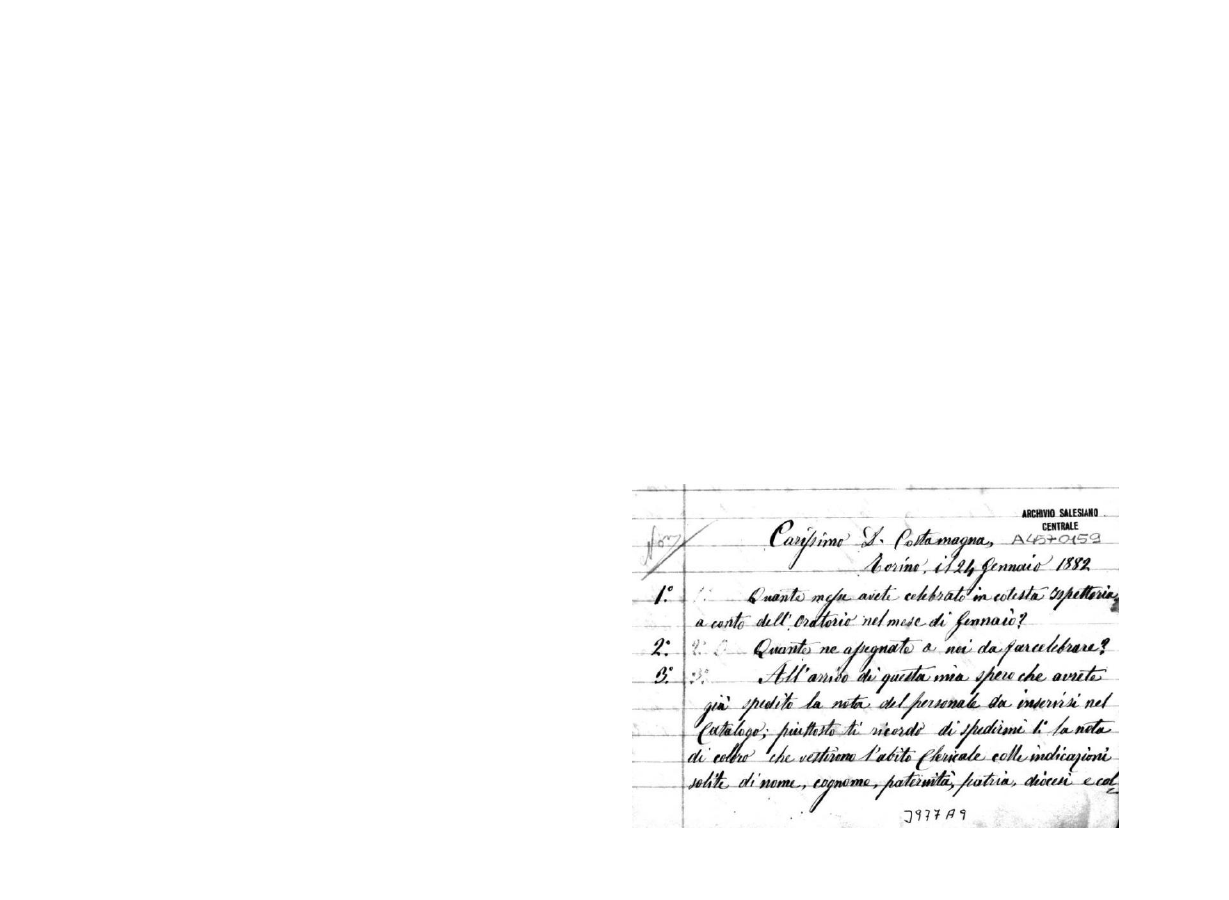 ARCHIVIO SALESIANO
CENTRALE
A4570159
Carissimo D. Costamagna,
Torino, il 24 Gennaio 1882
1° Quante messe avete celebrato in cotesta Ispettoria
a conto dell'Oratorio nel mese di Gennaio?
2° 2° Quante ne assegnate a noi da far celebrare?
3° 3° All'arrivo di questa mia spero che avrete
già spedito la nota del personale da inserirsi nel
Catalogo; piuttosto ti ricordo di spedirmi 1° la nota
di coloro che vestirono l'abito Clericale colle indicazioni
solite di nome, cognome, paternità, patria, diocesi e col
J977A9